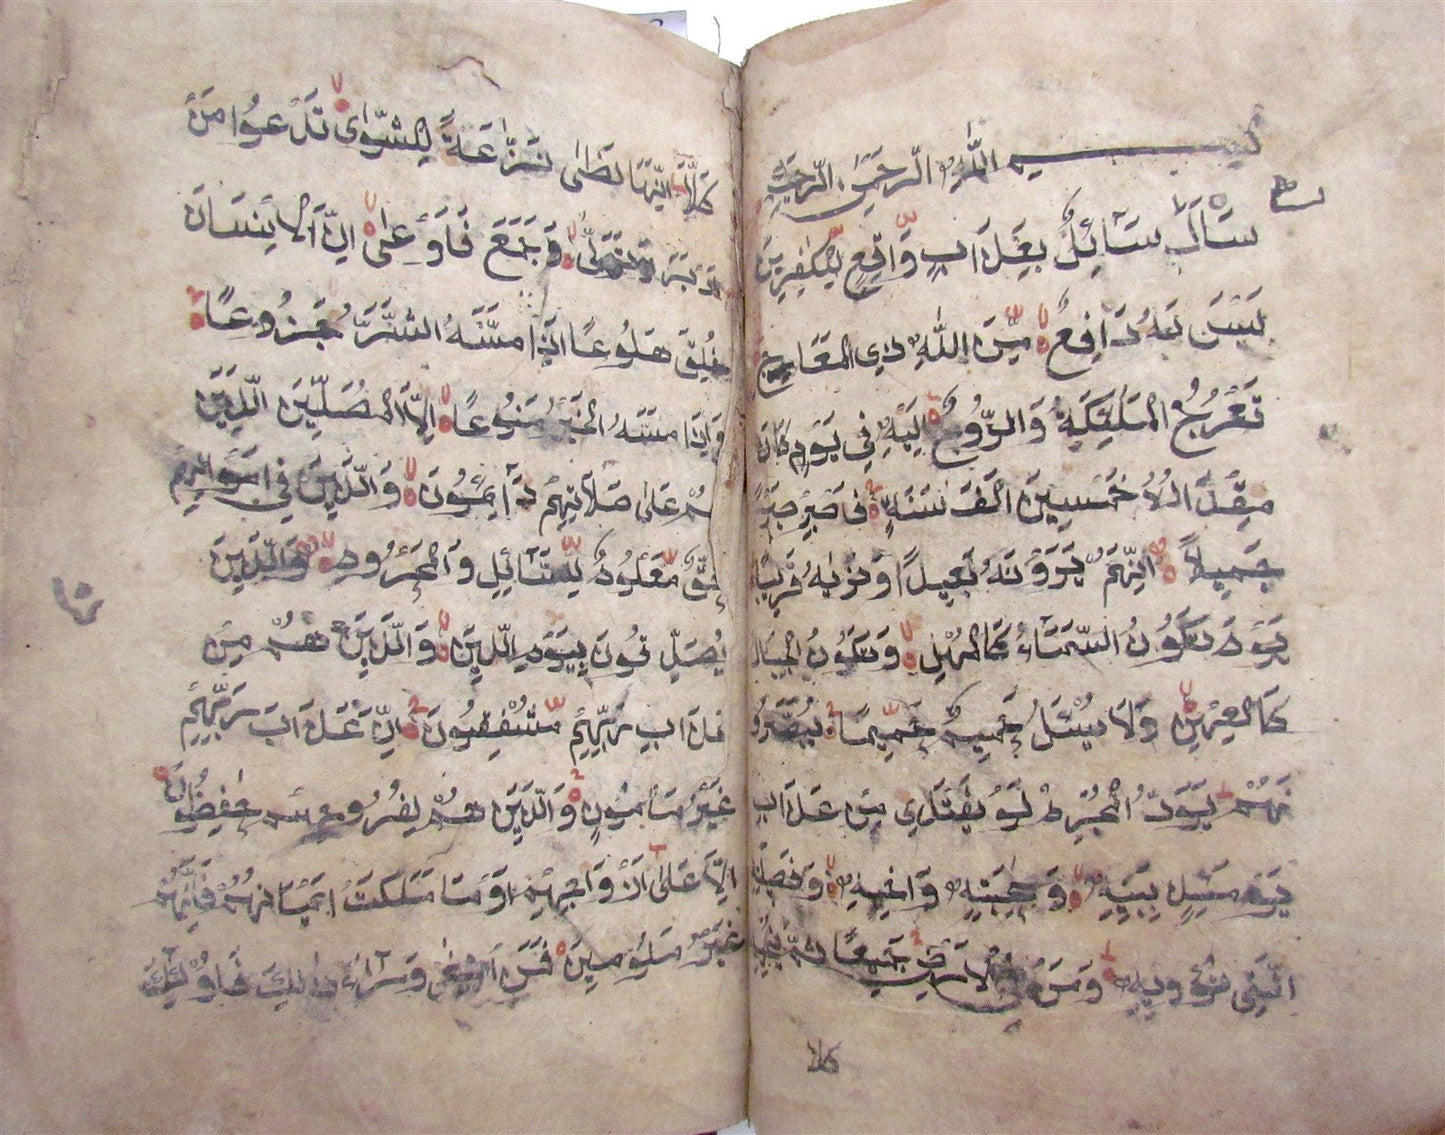 بسم الله الرحمن الرحيم
سَأَلَ سَآئِلٌ بِعَذَابٍ وَّاقِعٍ لِّلْكٰفِرِينَ
لَيْسَ لَهُ دَافِعٌ مِّنَ اللّٰهِ ذِي الْمَعَارِجِ
تَعْرُجُ الْمَلٰٓئِكَةُ وَالرُّوحُ إِلَيْهِ فِي يَوْمٍ كَانَ
مِقْدَارُهُ خَمْسِينَ أَلْفَ سَنَةٍ فَاصْبِرْ صَبْرًا
جَمِيلًا إِنَّهُمْ يَرَوْنَهُ بَعِيدًا وَنَرٰىهُ قَرِيبًا
يَوْمَ تَكُونُ السَّمَآءُ كَالْمُهْلِ وَتَكُونُ الْجِبَالُ
كَالْعِهْنِ وَلَا يَسْئَلُ حَمِيمٌ حَمِيمًا يُبَصَّرُو
نَهُمْ يَوَدُّ الْمُجْرِمُ لَوْ يَفْتَدِي مِنْ عَذَابِ
يَوْمَئِذٍ بِبَنِيهِ وَصٰحِبَتِهِ وَأَخِيهِ وَفَصِيلَتِهِ
الَّتِي تُؤْوِيهِ وَمَنْ فِي الْأَرْضِ جَمِيعًا ثُمَّ يُنْجِيهِ
كلا
كَلَّا إِنَّهَا لَظٰى نَزَّاعَةً لِلشَّوٰى تَدْعُوا مَنْ
أَدْبَرَ وَتَوَلّٰى وَجَمَعَ فَأَوْعٰى إِنَّ الْإِنْسَانَ
خُلِقَ هَلُوعًا إِذَا مَسَّهُ الشَّرُّ جَزُوعًا
وَإِذَا مَسَّهُ الْخَيْرُ مَنُوعًا إِلَّا الْمُصَلِّينَ الَّذِينَ
هُمْ عَلٰى صَلَاتِهِمْ دَآئِمُونَ وَالَّذِينَ فِي أَمْوَالِهِمْ
حَقٌّ مَّعْلُومٌ لِّلسَّآئِلِ وَالْمَحْرُومِ وَالَّذِينَ
يُصَدِّقُونَ بِيَوْمِ الدِّينِ وَالَّذِينَ هُمْ مِنْ
عَذَابِ رَبِّهِمْ مُّشْفِقُونَ إِنَّ عَذَابَ رَبِّهِمْ
غَيْرُ مَأْمُونٍ وَالَّذِينَ هُمْ لِفُرُوجِهِمْ حٰفِظُونَ
إِلَّا عَلٰى أَزْوَاجِهِمْ أَوْ مَا مَلَكَتْ أَيْمَانُهُمْ فَإِنَّهُمْ
غَيْرُ مَلُومِينَ فَمَنِ ابْتَغٰى وَرَآءَ ذٰلِكَ فَأُولٰٓئِكَ